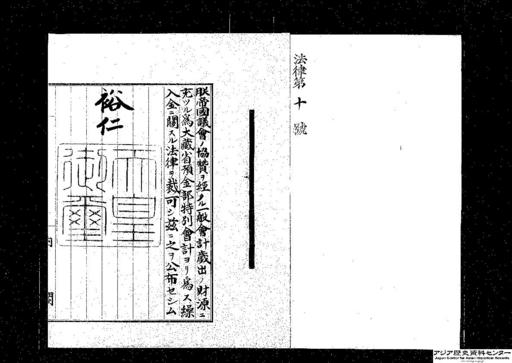 法律第十號
朕帝國議會ノ協贊ヲ經タル一般會計歲出ノ財源ニ
充ツル爲大藏省預金部特別會計ヨリ爲ス繰
入金ニ關スル法律ヲ裁可シ茲ニ之ヲ公布セシム
裕仁
天皇
御璽
内閣
アジア歴史資料センター
Japan Center for Asian Historical Records